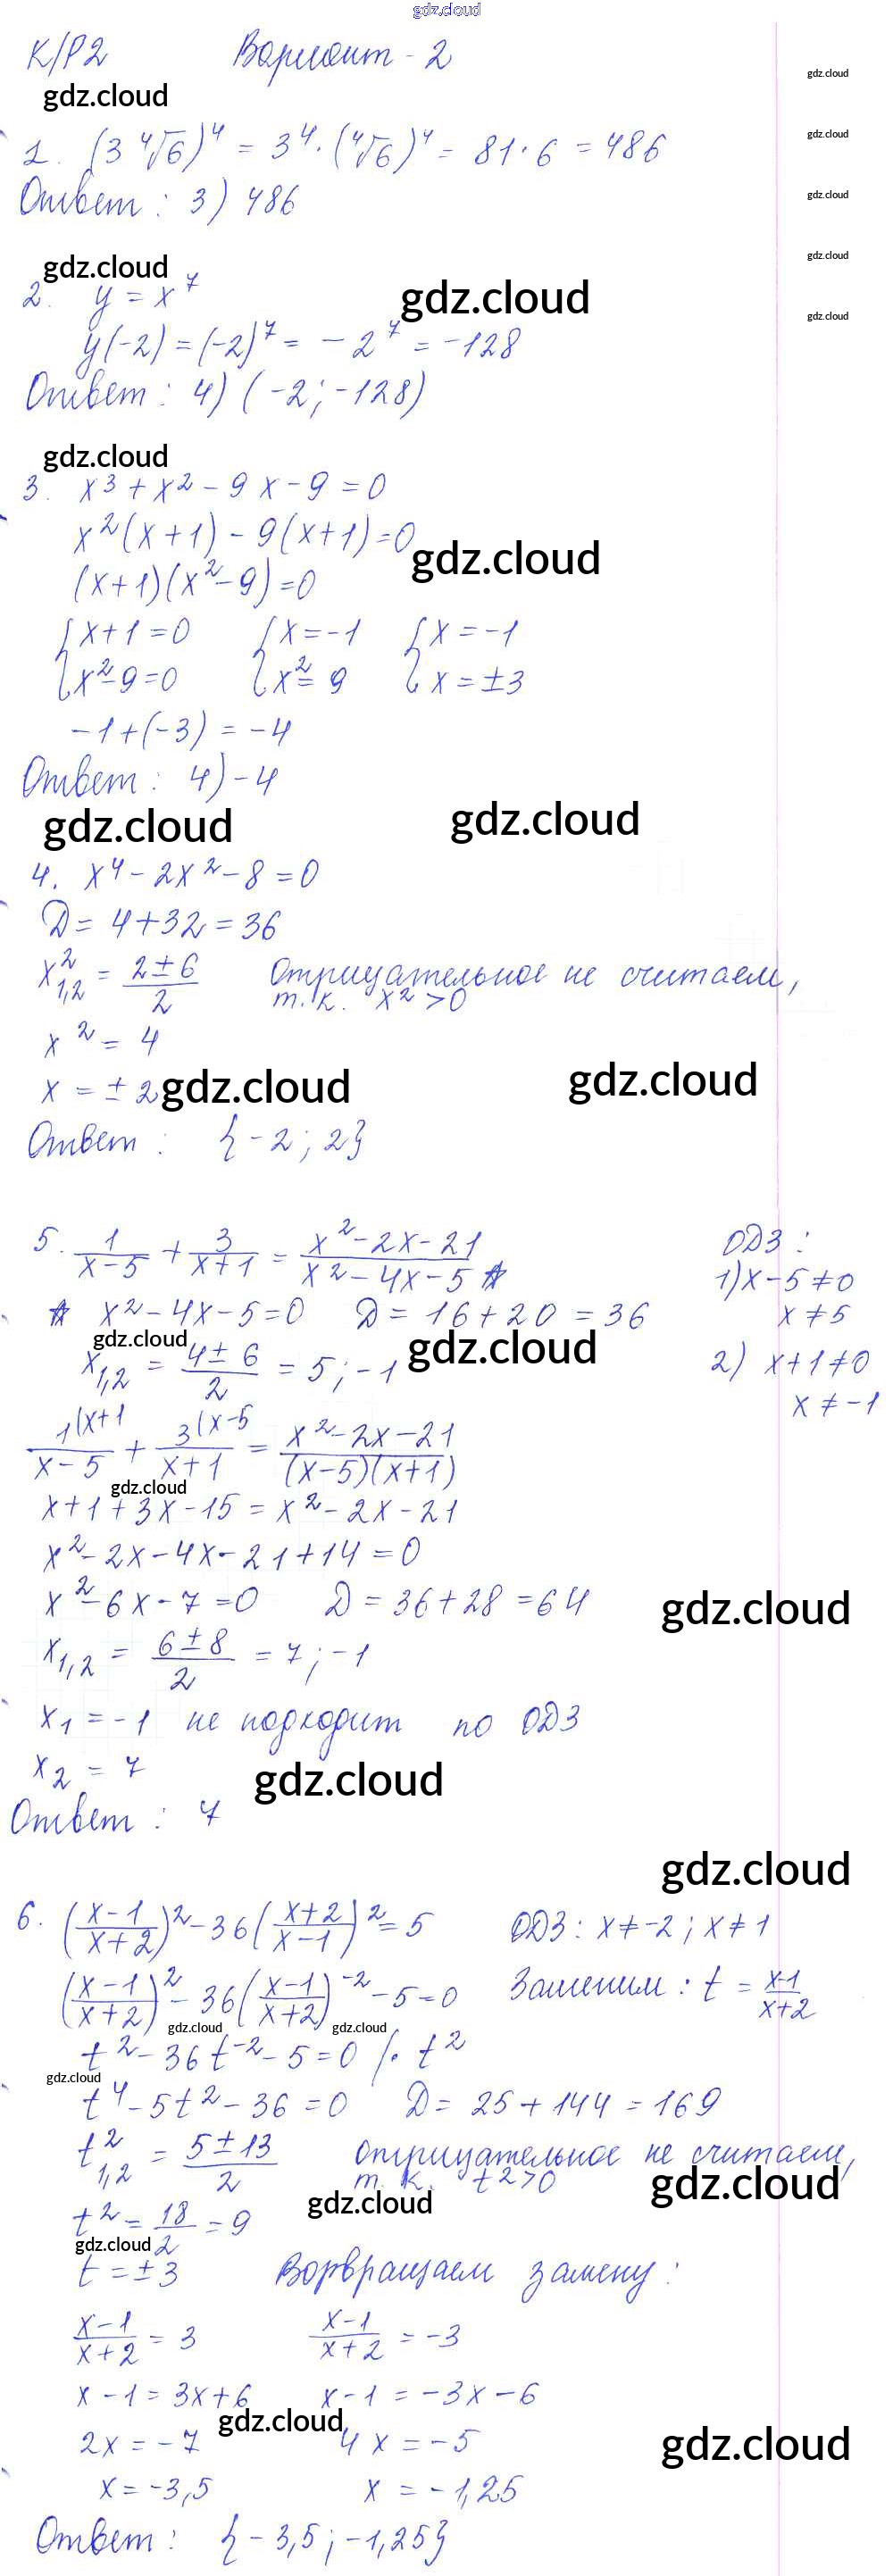 gdz.cloud
К/Р2 Вариант - 2
gdz.cloud
gdz.cloud
1. (3 ∜6)⁴ = 3⁴ · (∜6)⁴ = 81 · 6 = 486
gdz.cloud
Ответ : 3) 486
gdz.cloud
gdz.cloud
gdz.cloud
2. y = x⁷
gdz.cloud
gdz.cloud
y(-2) = (-2)⁷ = -2⁷ = -128
Ответ : 4) (-2 ; -128)
gdz.cloud
3. x³ + x² - 9x - 9 = 0
x²(x+1) - 9(x+1) = 0
gdz.cloud
(x+1)(x²-9) = 0
{ x+1 = 0 { x = -1 { x = -1
{ x²-9 = 0 { x² = 9 { x = ±3
-1 + (-3) = -4
Ответ : 4) -4
gdz.cloud gdz.cloud
4. x⁴ - 2x² - 8 = 0
D = 4 + 32 = 36
x²₁,₂ = (2±6)/2 Отрицательное не считаем,
т.к. x² > 0
x² = 4
x = ±2
gdz.cloud gdz.cloud
Ответ : {-2 ; 2}
5. 1/(x-5) + 3/(x+1) = (x²-2x-21)/(x²-4x-5) ☆ ОДЗ :
1) x-5 ≠ 0
☆ x² - 4x - 5 = 0 D = 16 + 20 = 36 x ≠ 5
gdz.cloud gdz.cloud
x₁,₂ = (4±6)/2 = 5 ; -1 2) x+1 ≠ 0
x ≠ -1
1(x+1/(x-5) + 3(x-5/(x+1) = (x²-2x-21)/((x-5)(x+1))
gdz.cloud
x+1+3x-15 = x²-2x-21
x²-2x-4x-21+14 = 0
x²-6x-7 = 0 D = 36+28 = 64
gdz.cloud
x₁,₂ = (6±8)/2 = 7 ; -1
x₁ = -1 не подходит по ОДЗ
x₂ = 7
gdz.cloud
Ответ : 7
gdz.cloud
6. ((x-1)/(x+2))² - 36((x+2)/(x-1))² = 5 ОДЗ : x ≠ -2 ; x ≠ 1
((x-1)/(x+2))² - 36((x-1)/(x+2))⁻² - 5 = 0 Заменим : t = (x-1)/(x+2)
gdz.cloud gdz.cloud
t² - 36t⁻² - 5 = 0 /· t²
gdz.cloud
t⁴ - 5t² - 36 = 0 D = 25 + 144 = 169
t²₁,₂ = (5±13)/2 отрицательное не считаем,
т.к. t² > 0
gdz.cloud
gdz.cloud
t² = 18/2 = 9
gdz.cloud
t = ±3 Ворвращаем замену :
(x-1)/(x+2) = 3 (x-1)/(x+2) = -3
x-1 = 3x+6 x-1 = -3x-6
gdz.cloud
2x = -7 4x = -5
gdz.cloud
x = -3,5 x = -1,25
Ответ : {-3,5 ; -1,25}